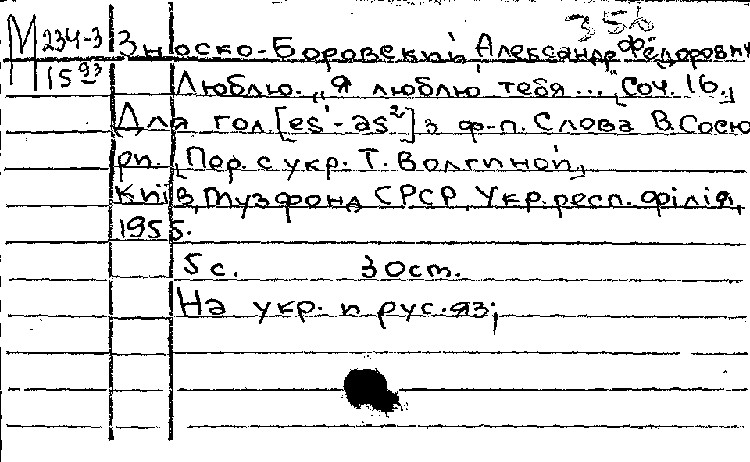 356
М 234-3 Зноско-Боровский Александр Фёдорович
15 93 Люблю. „Я люблю тебя... [Соч. 16.]
Для гол. [es¹-as²] з ф-п. Слова В. Сосю
ри. [Пер. с укр. Т. Волгиной]
Київ, Музфонд СРСР, Укр. респ. філія,
1955.
5 с. 30 ст.
На укр. и рус. яз;